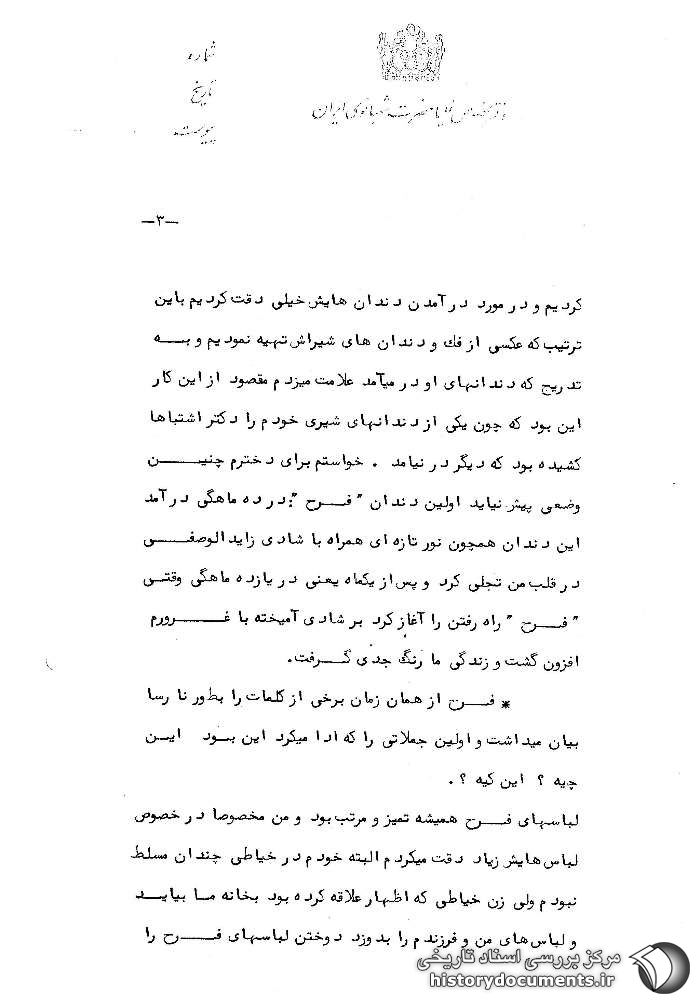 شماره
تاریخ
پیوست
دفتر مخصوص علیاحضرت شهبانوی ایران
—۳—
کردیم و در مورد درآمدن دندان هایش خیلی دقت کردیم باین
ترتیب که عکسی از فك و دندان های شیراش تهیه نمودیم و بـــه
تدریج که دندانهای او در میآمد علامت میزدم مقصود از این کار
این بود که چون یکی از دندانهای شیری خودم را دکتر اشتباها
کشیده بود که دیگر در نیامد . خواستم برای دخترم چنیــــن
وضعی پیش نیاید اولین دندان " فـــرح ": در ده ماهگی درآمد
این دندان همچون نور تازه ای همراه با شادی زاید الوصفـــی
در قلب من تجلی کرد و پس از یکماه یعنی در یازده ماهگی وقتـــی
" فـــرح " راه رفتن را آغاز کرد بر شادی آمیخته با غـــرورم
افزون گشت و زندگی ما رنگ جدی گـــرفت.
* فـــرح از همان زمان برخی از کلمات را بطور نا رسا
بیان میداشت و اولین جملاتی را که ادا میکرد این بـــود ایـــن
چیه ؟ این کیه ؟ .
لباسهای فـــرح همیشه تمیز و مرتب بود و من مخصوصا در خصوص
لباس هایش زیاد دقت میکردم البته خودم در خیاطی چندان مسلط
نبودم ولی زن خیاطی که اظهار علاقه کرده بود بخانه مـــا بیایـــد
و لباس های من و فرزندم را بدوزد دوختن لباسهای فـــرح را
مرکز بررسی اسناد تاریخی
historydocuments.ir